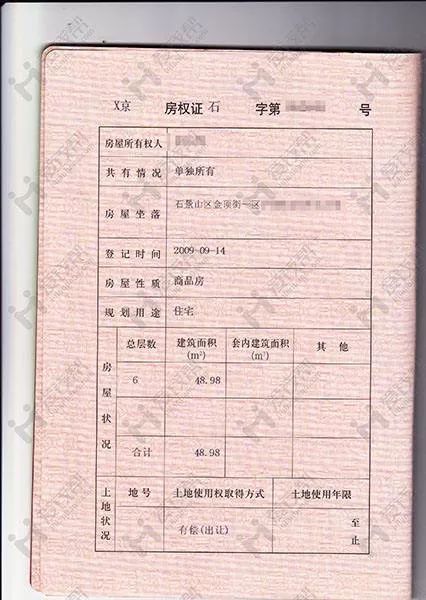 X京 房权证 石 字第 号
房屋所有权人
共有情况 单独所有
房屋坐落 石景山区金顶街一区
登记时间 2009-09-14
房屋性质 商品房
规划用途 住宅
房屋状况
总层数 建筑面积(m²) 套内建筑面积(m²) 其他
6 48.98
合计 48.98
土地状况
地号 土地使用权取得方式 土地使用年限
有偿(出让) 至
止